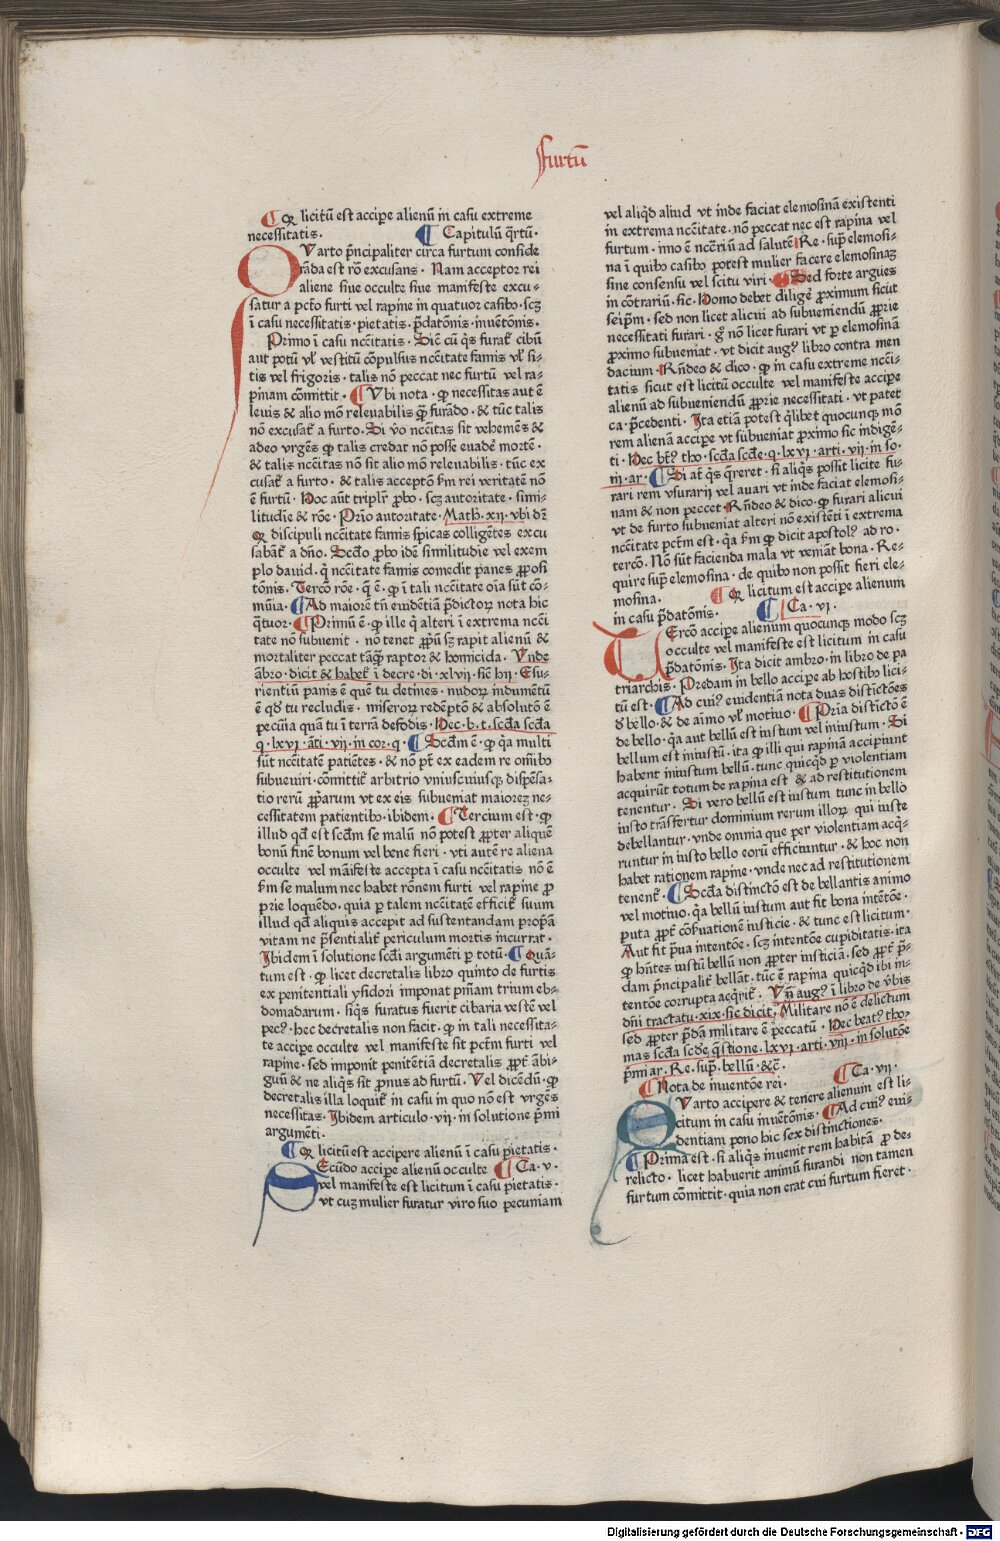 furtū
¶ Qꝫ licitū est accipe alienū in casu extreme
necessitatis. ¶ Capitulū q̄rtū.
QVarto p̄ncipaliter circa furtum conside
rāda est rō excusans. Nam acceptor rei
aliene siue occulte siue manifeste excu-
satur a pct̄o furti vel rapine in quatuor casibꝰ. scꝫ
ī casu necessitatis. pietatis. p̄datōnis. inuētōnis.
Primo ī casu nc̄citatis. Siē cū q̄s furat᷑ cibū
aut potū vl᷑ vestitū cōpulsus nc̄citate famis vl᷑ si-
tis vel frigoris. talis nō peccat nec furtū vel ra-
pinam cōmittit. ¶ Vbi nota. ꝙ necessitas aut ē
leuis & alio mō releuabilis q̄ꝫ furādo. & tūc talis
nō excusat᷑ a furto. Si v̄o nc̄citas sit vehemēs &
adeo vrgēs ꝙ talis credat nō posse euadē mortē.
& talis nc̄citas nō sit alio mō releuabilis. tūc ex
cusat᷑ a furto. & talis acceptō ẜm rei veritatē nō
ē furtū. Hoc aūt triplr̄ ꝓbo. scꝫ autoritate. simi-
litudīe & rōe. Prīo autoritate. Math. xij. vbi dr̄
ꝙ discipuli nc̄citate famis spicas colligētes excu
sabāt᷑ a dn̄o. Scd̄o ꝓbo idē similitudīe vel exem
plo dauid. q̄ nc̄citate famis comedit panes ꝓposi
tōnis. Tercō rōe. q̄ ē. ꝙ ī tali nc̄citate oīa sūt cō-
mūia. ¶ Ad maiorē tn̄ euidētiā p̄dictoꝝ nota hic
q̄tuor. ¶ Primū ē. ꝙ ille q̄ alteri ī extrema nc̄ci
tate nō subuenit. nō tenet ꝓpū sꝫ rapit alienū &
mortaliter peccat tāq̄ꝫ raptor & homicida. Vnde
ābro. dicit & habet᷑ ī decre. di. xlvij. sic hij. Esu-
rientiū panis ē quē tu detines. nudoꝝ indumētū
ē qd̄ tu recludis. miseroꝝ redēptō & absolutō ē
pecūia quā tu ī terrā defodis. Hec. b. t. scd̄a scd̄a
q. lxvi. āti. vij. in cor. q. ¶ Scd̄m ē. ꝙ q̄a multi
sūt nc̄citatē patiētes. & nō pt̄ ex eadem re om̄ibꝰ
subueniri. cōmittit᷑ arbitrio vniuscuiusqꝫ dispēsa-
tio rerū ꝓpriarum vt ex eis subueniat maioreꝫ ne-
cessitatem patientibꝰ. ibidem. ¶ Tercium est. ꝙ
illud qd̄ est scd̄m se malū nō potest ꝓpter aliquē
bonū finē bonum vel bene fieri. vti autē re aliena
occulte vel māifeste accepta ī casu nc̄citatis nō ē
ẜm se malum nec habet rōnem furti vel rapine ꝓ
prie loquēdo. quia ꝑ talem nc̄citatē efficit᷑ suum
illud qd̄ aliquis accepit ad sustentandam propriā
vitam ne p̄sentialit᷑ periculum mortis incurrat.
Ibidem ī solutione scd̄i argumēti ꝑ totū. ¶ Quā-
tum est. ꝙ licet decretalis libro quinto de furtis
ex penitentiali ysidori imponat pn̄iam trium eb-
domadarum. siq̄s furatus fuerit cibaria vestē vel
pecꝰ. hec decretalis non facit. ꝙ in tali necessita-
te accipe occulte vel manifeste sit pct̄m furti vel
rapine. sed imponit penitētiā decretalis ꝓpt᷑ ābi-
guū & ne aliq̄s sit pronus ad furtū. Vel dicēdū. ꝙ
decretalis illa loquit᷑ in casu in quo nō est vrgēs
necessitas. Ibidem articulo. vij. in solutione p̄mi
argumēti.
¶ Qꝫ licitū est accipere alienū ī casu pietatis.
SEcūdo accipe alienū occulte ¶ Ca. v.
vel manifeste est licitum ī casu pietatis.
vt cuꝫ mulier furatur viro suo pecuniam
vel aliqd̄ aliud vt inde faciat elemosinā existenti
in extrema nc̄citate. nō peccat nec est rapina vel
furtum. imo ē nc̄cr̄iū ad salutē. Re. supͣ elemosi-
na ī quibꝰ casibꝰ potest mulier facere elemosinaꝫ
sine consensu vel scitu viri. ¶ Sed forte argues
in cōtrariū. sic. Homo debet diligē ꝓximum sicut
seip̄m. sed non licet alicui ad subueniendū ꝓprie
necessitati furari. gͦ nō licet furari vt ꝑ elemosinā
ꝓximo subueniat. vt dicit augꝰ libro contra men
dacium. Rn̄deo & dico. ꝙ in casu extreme nc̄ci-
tatis sicut est licitū occulte vel manifeste accipe
alienū ad subueniendū ꝓprie necessitati. vt patet
ca. p̄cedenti. Ita etiā potest q̄libet quocunqꝫ mō
rem alienā accipe vt subueniat ꝓximo sic indigē-
ti. Hec bt̄ꝰ tho. scd̄a scd̄e. q. lxvi. arti. vij. in so.
iij. ar. ¶ Si aūt q̄s q̄reret. si aliq̄s possit licite fu-
rari rem vsurarij vel auari vt inde faciat elemosi-
nam & non peccet. Rn̄deo & dico. ꝙ furari alicui
vt de furto subueniat alteri nō existēti ī extrema
nc̄citate pct̄m est. q̄a ẜm ꝙ dicit apostolꝰ ad ro.
tercō. Nō sūt facienda mala vt veniāt bona. Re-
quire supͣ elemosina. de quibꝰ non possit fieri ele-
mosina. ¶ Qꝫ licitum est accipe alienum
in casu p̄datōnis. ¶ Ca. vi.
TErcō accipe alienum quocunqꝫ modo scꝫ
occulte vel manifeste est licitum in casu
p̄datōnis. Ita dicit ambro. in libro de pa
triarchis. Predam in bello accipe ab hostibꝰ lici-
tū est. ¶ Ad cuiꝰ euidentiā nota duas distīctōes
d̄ bello. & de aīmo vl᷑ motiuo. ¶ Pria distīctō ē
de bello. q̄a aut bellū est iustum vel iniustum. Si
bellum est iniustū. ita ꝙ illi qui rapinā accipiunt
habent iniustum bellū. tunc quicqd̄ ꝑ violentiam
acquirūt totum de rapina est & ad restitutionem
tenentur. Si vero bellū est iustum tunc in bello
iusto trāsfertur dominium rerum illoꝝ qui iuste
debellantur. vnde omnia que per violentiam acq̄-
runtur in iusto bello eorū efficiuntur. & hoc non
habet rationem rapine. vnde nec ad restitutionem
tenent᷑. ¶ Scd̄a distinctō est de bellantis animo
vel motiuo. q̄a bellū iustum aut fit bona intētōe.
puta ꝓpt᷑ cōẜuationē iusticie. & tunc est licitum.
Aut fit p̄ua intentōe. scꝫ intentōe cupiditatis. ita
ꝙ hn̄tes iustū bellū non ꝓpter iusticiā. sed ꝓpt᷑ p̄-
dam p̄ncipalit᷑ bellāt. tūc ē rapina quicqd̄ ibi in-
tentōe corrupta acq̄rit᷑. Vn̄ augꝰ ī libro de v̄bis
dn̄i tractatu. xix. sic dicit. Militare nō ē delictum
sed ꝓpter p̄dā militare ē peccatū. Hec beatꝰ tho-
mas scd̄a scd̄e q̄stione. lxvi. arti. viij. in solutōe
p̄mi ar. Re. supͣ. bellū. &c̄.
¶ Nota de inuentōe rei. ¶ Ca. vij.
QVarto accipere & tenere alienum est li-
citum in casu inuētōnis. ¶ Ad cuiꝰ eui-
dentiam pono hic sex distinctiones.
¶ Prima est. si aliq̄s inuenit rem habitā ꝓ de-
relicto. licet habuerit animū furandi non tamen
furtum cōmittit. quia non erat cui furtum fieret.
Digitalisierung gefördert durch die Deutsche Forschungsgemeinschaft - DFG